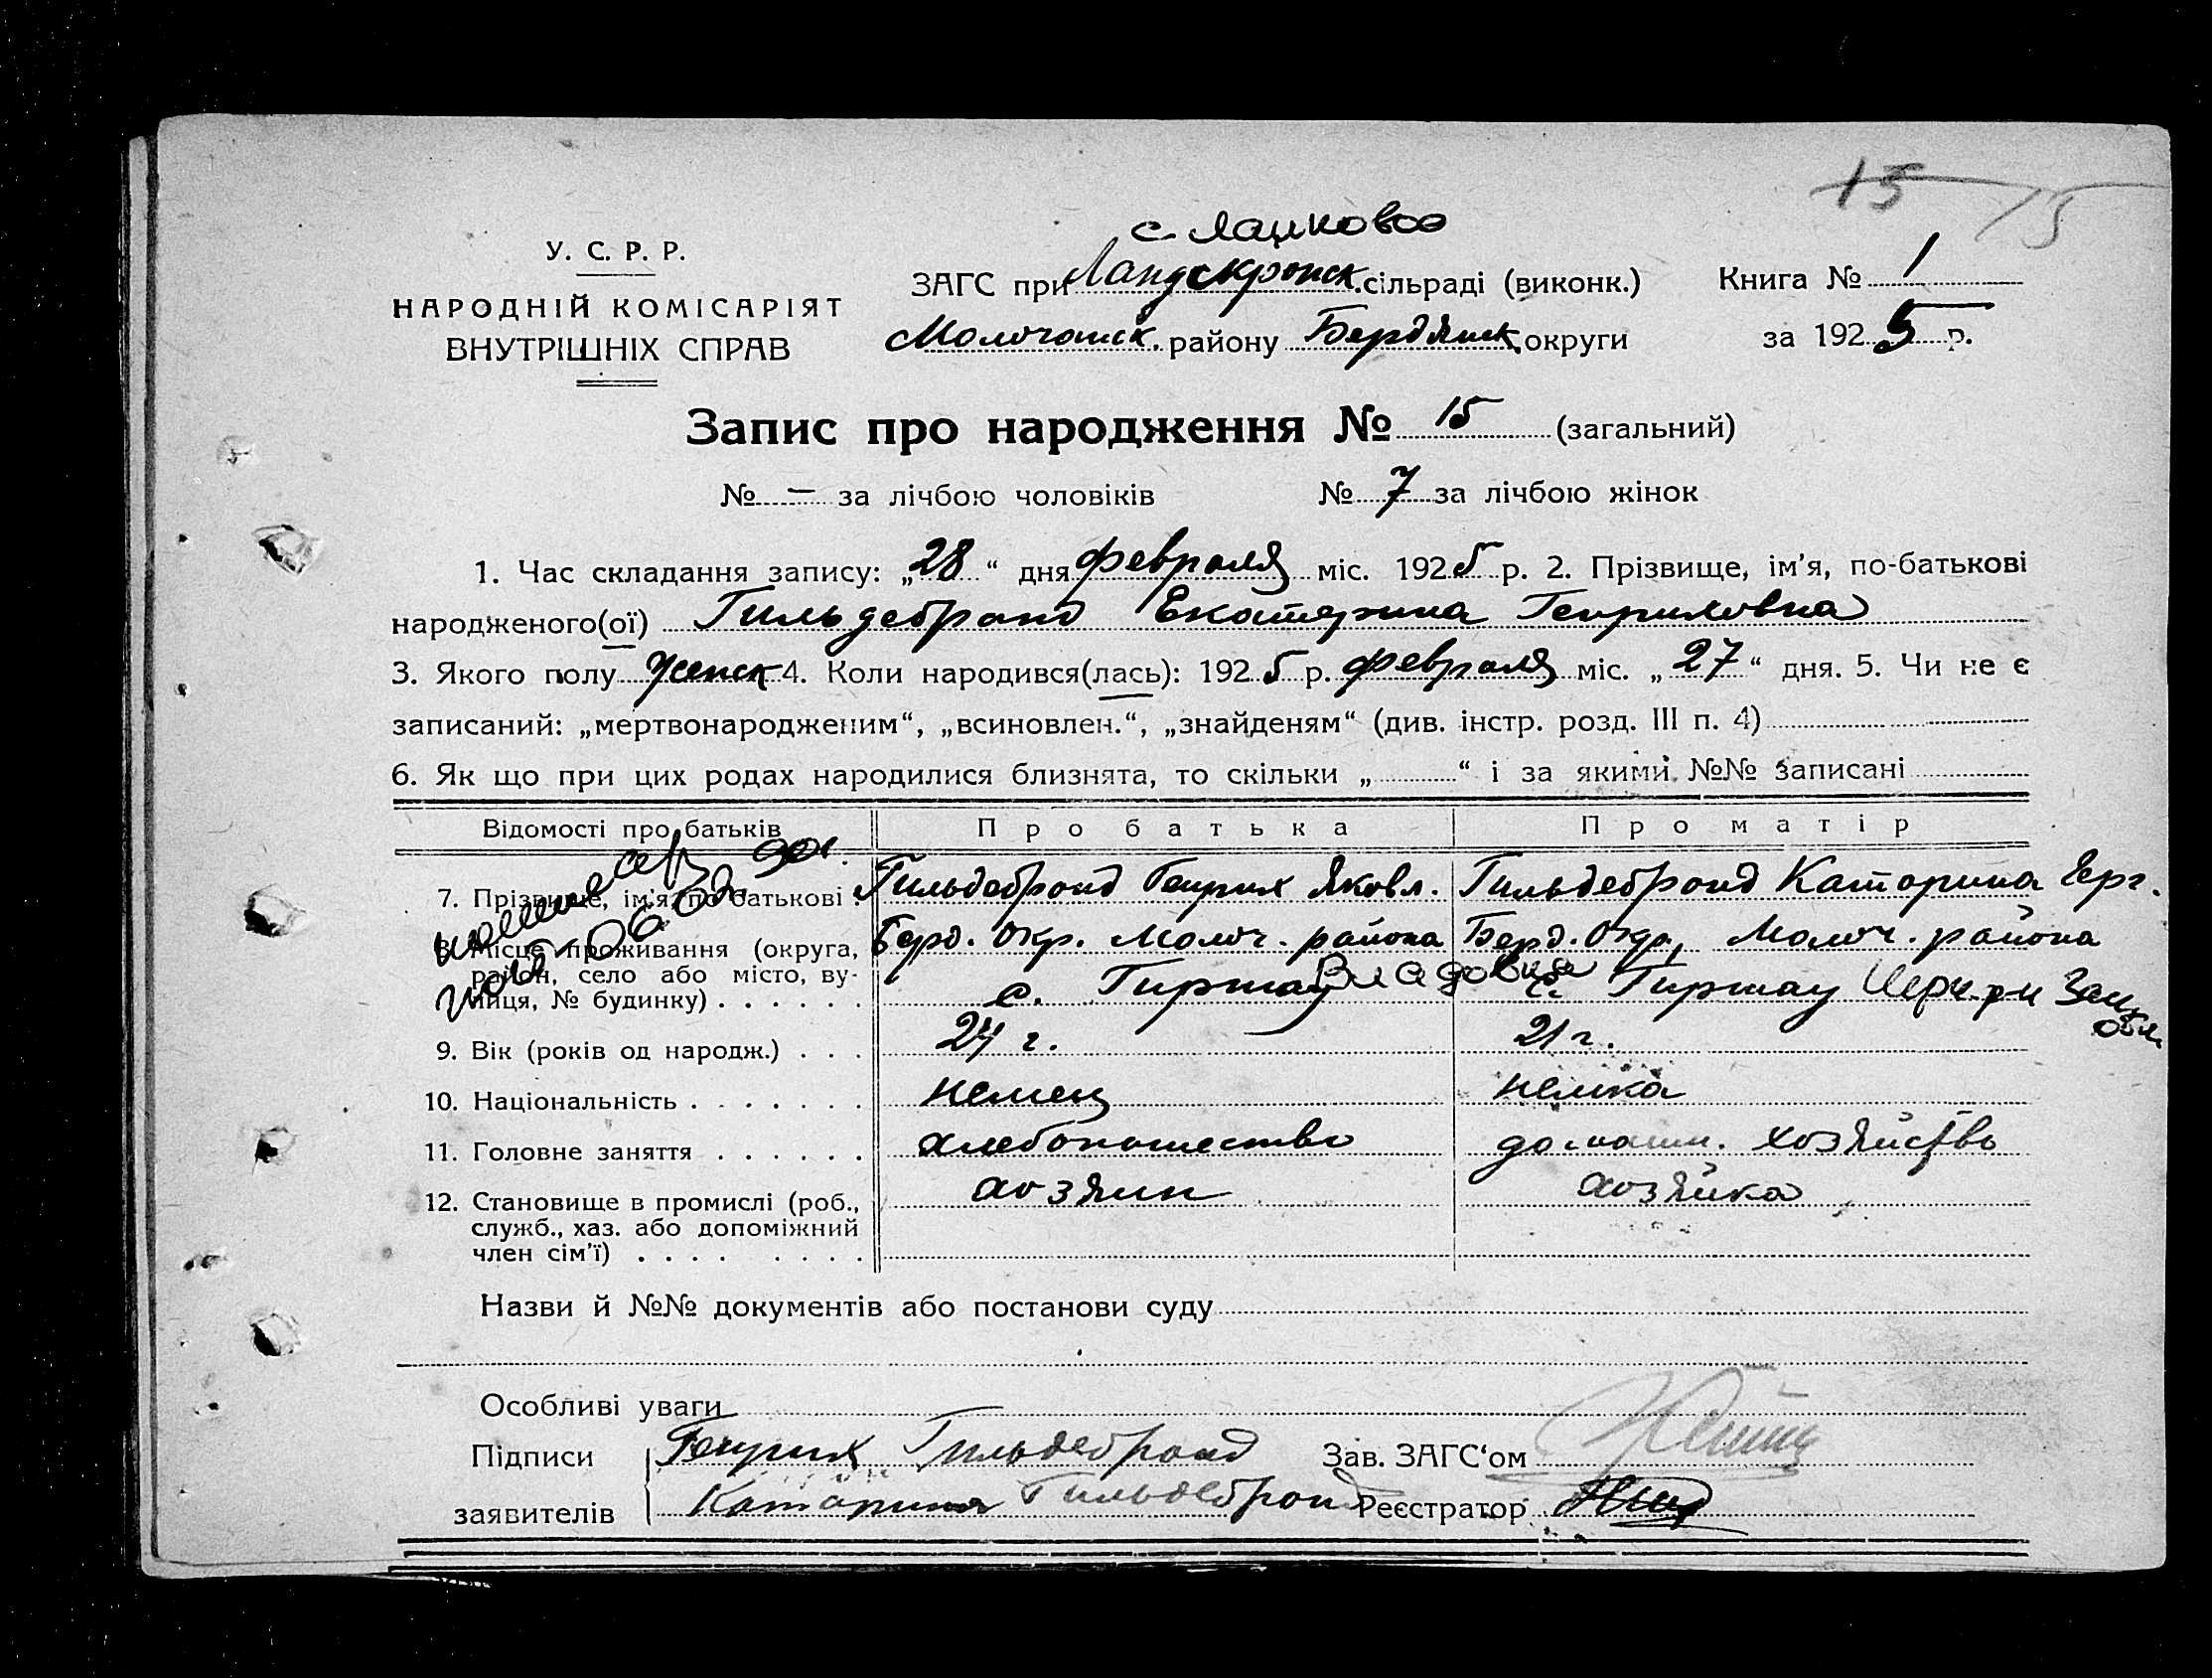 15 15
с. Ланковое
У. С. Р. Р.
НАРОДНІЙ КОМІСАРІЯТ
ВНУТРІШНІХ СПРАВ
ЗАГС при Ландскронск. сільраді (виконк.)
Молочанск. району Бердянск. округи
Книга № 1
за 1925 р.
Запис про народження № 15 (загальний)
№ — за лічбою чоловіків № 7 за лічбою жінок
1. Час складання запису: „28“ дня февраля міс. 1925 р. 2. Прізвище, ім'я, по-батькові
народженого(ої) Гильдебранд Екатерина Генриховна
3. Якого полу женск 4. Коли народився(лась): 1925 р. февраля міс. „27“ дня. 5. Чи не є
записаний: „мертвонародженим“, „всиновлен.“, „знайденям“ (див. інстр. розд. III п. 4)
6. Як що при цих родах народилися близнята, то скільки „ “ і за якими №№ записані
Відомості про батьків Про батька Про матір
7. Прізвище, ім'я, по батькові Гильдебранд Генрих Яковл. Гильдебранд Катарина Герг.
8. Місце проживання (округа, Берд. Окр. Молоч. района Берд. Окр., Молоч. района
район, село або місто, ву-
лиця, № будинку) с. Гиршау Владовка с. Гиршау
9. Вік (років од народж.) 24 г. 21 г.
10. Національність немец немка
11. Головне заняття хлебопашество домашн. хозяйство
12. Становище в промислі (роб., хозяин хозяйка
служб., хаз. або допоміжний
член сім'ї)
Назви й №№ документів або постанови суду
Особливі уваги
Підписи Генрих Гильдебранд Зав. ЗАГС'ом
заявителів Катарина Гильдебранд Реєстратор